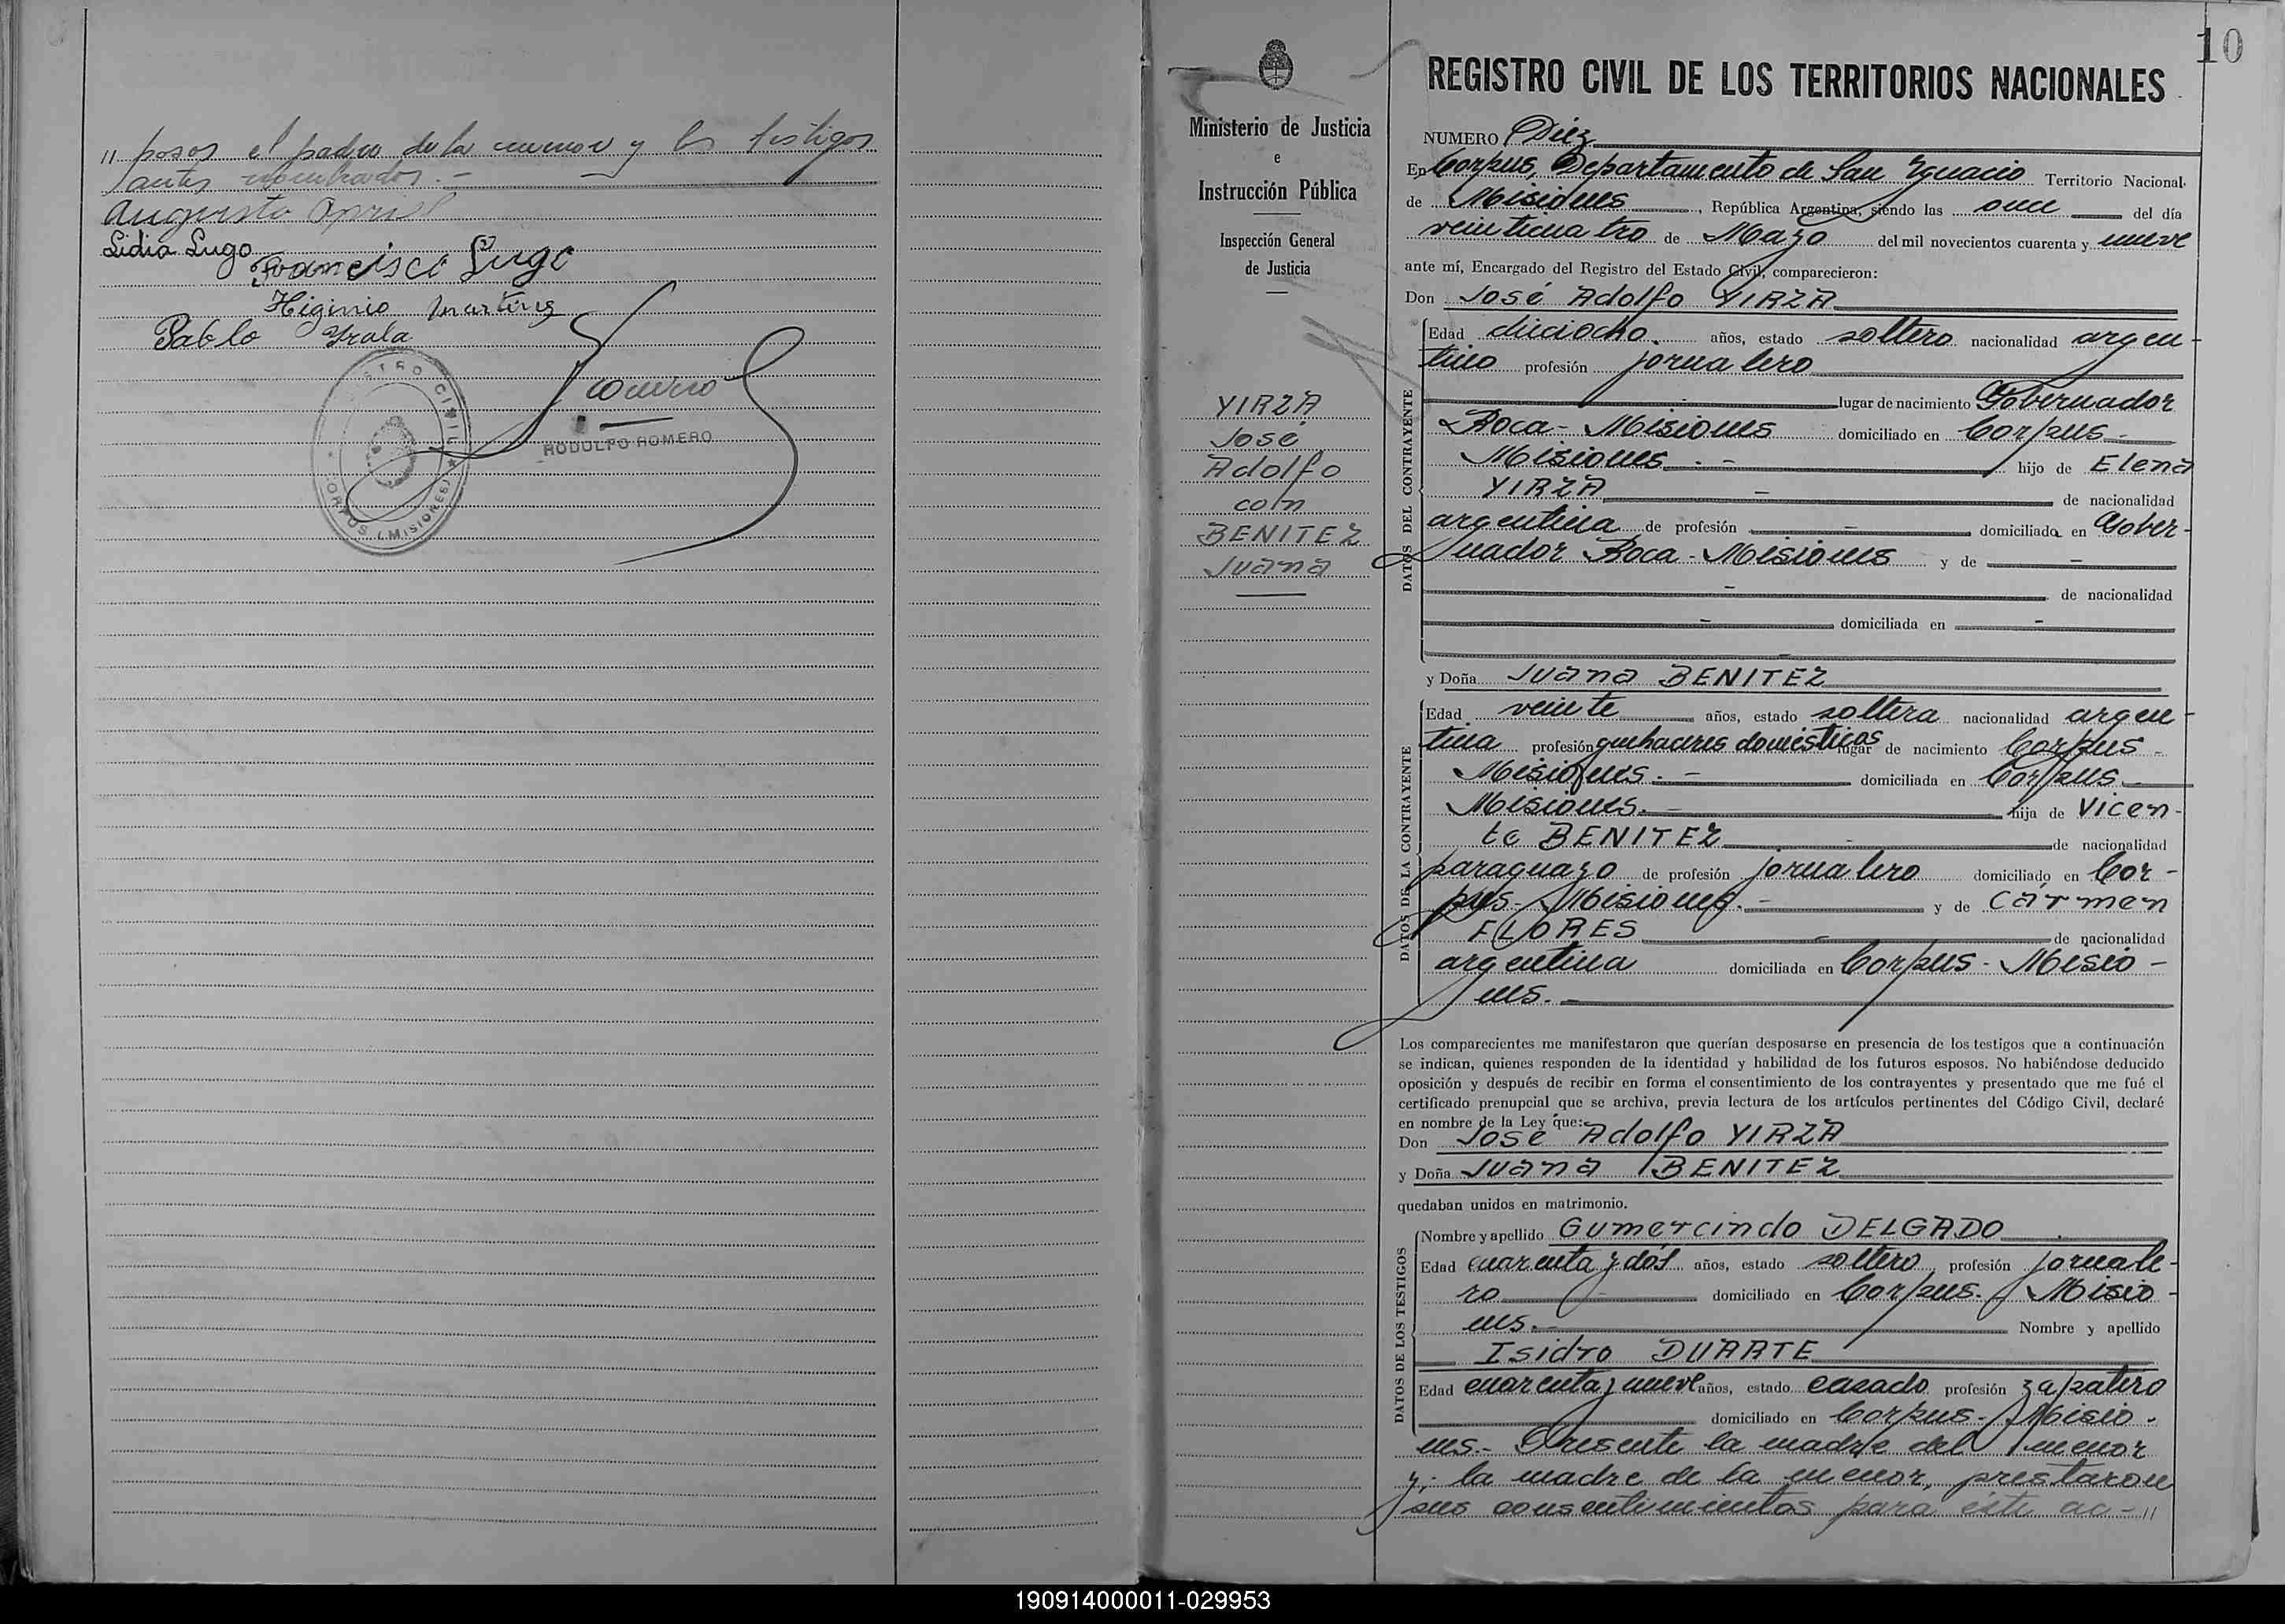 " posos el padre de la menor y los testigos
antes nombrados.-
Augusto
Lidia Lugo
Francisco Lugo
Higinio Martinez
Pablo Yrala
Romero
RODOLFO ROMERO
REGISTRO CIVIL
CORPUS (MISIONES)
10
Ministerio de Justicia
e
Instrucción Pública
Inspección General
de Justicia
YIRZA
José
Adolfo
con
BENITEZ
Juana
REGISTRO CIVIL DE LOS TERRITORIOS NACIONALES
NUMERO Diez
En Corpus, Departamento de San Ygnacio Territorio Nacional
de Misiones, República Argentina, siendo las once del día
veinticuatro de Mayo del mil novecientos cuarenta y nueve
ante mí, Encargado del Registro del Estado Civil, comparecieron:
Don José Adolfo YIRZA
DATOS DEL CONTRAYENTE
Edad dieciocho años, estado soltero nacionalidad argen-
tino profesión jornalero
lugar de nacimiento Gobernador
Roca - Misiones domiciliado en Corpus -
Misiones.- hijo de Elena
YIRZA - de nacionalidad
argentina de profesión - domiciliada en Gober-
nador Roca - Misiones y de -
- de nacionalidad
- domiciliada en -
-
y Doña Juana BENITEZ
DATOS DE LA CONTRAYENTE
Edad veinte años, estado soltera nacionalidad argen-
tina profesión quehaceres domésticos lugar de nacimiento Corpus -
Misiones.- domiciliada en Corpus -
Misiones.- hija de Vicen-
te BENITEZ - de nacionalidad
paraguayo de profesión jornalero domiciliado en Cor-
pus - Misiones.- y de Cármen
FLORES - de nacionalidad
argentina domiciliada en Corpus - Misio-
nes.-
Los comparecientes me manifestaron que querían desposarse en presencia de los testigos que a continuación
se indican, quienes responden de la identidad y habilidad de los futuros esposos. No habiéndose deducido
oposición y después de recibir en forma el consentimiento de los contrayentes y presentado que me fué el
certificado prenupcial que se archiva, previa lectura de los artículos pertinentes del Código Civil, declaré
en nombre de la Ley que:
Don José Adolfo YIRZA
y Doña Juana BENITEZ
quedaban unidos en matrimonio.
DATOS DE LOS TESTIGOS
Nombre y apellido Gumercindo DELGADO
Edad cuarenta y dos años, estado soltero profesión jornale-
ro - domiciliado en Corpus - Misio-
nes.- Nombre y apellido
Isidro DUARTE
Edad cuarenta y nueve años, estado casado profesión zapatero
domiciliado en Corpus - Misio-
nes.- Presente la madre del menor
y la madre de la menor, prestaron
sus consentimientos para éste ac-"
190914000011-029953